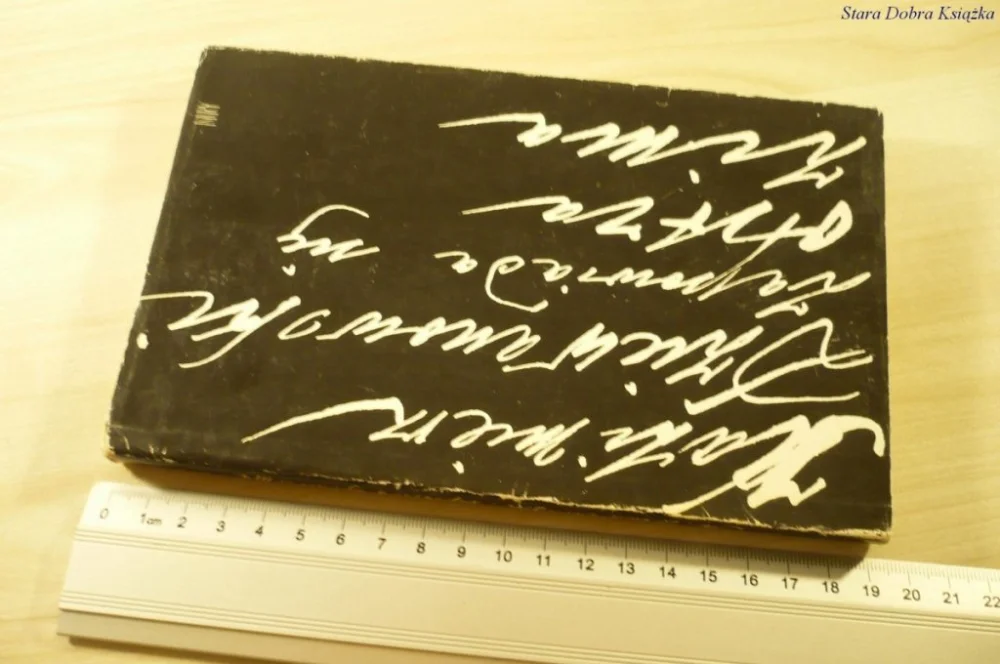 Stara Dobra Książka
Kazimierz
Dziewanowski
zapowiada się
ostra
zima
0 1cm 2 3 4 5 6 7 8 9 10 11 12 13 14 15 16 17 18 19 20 21 22